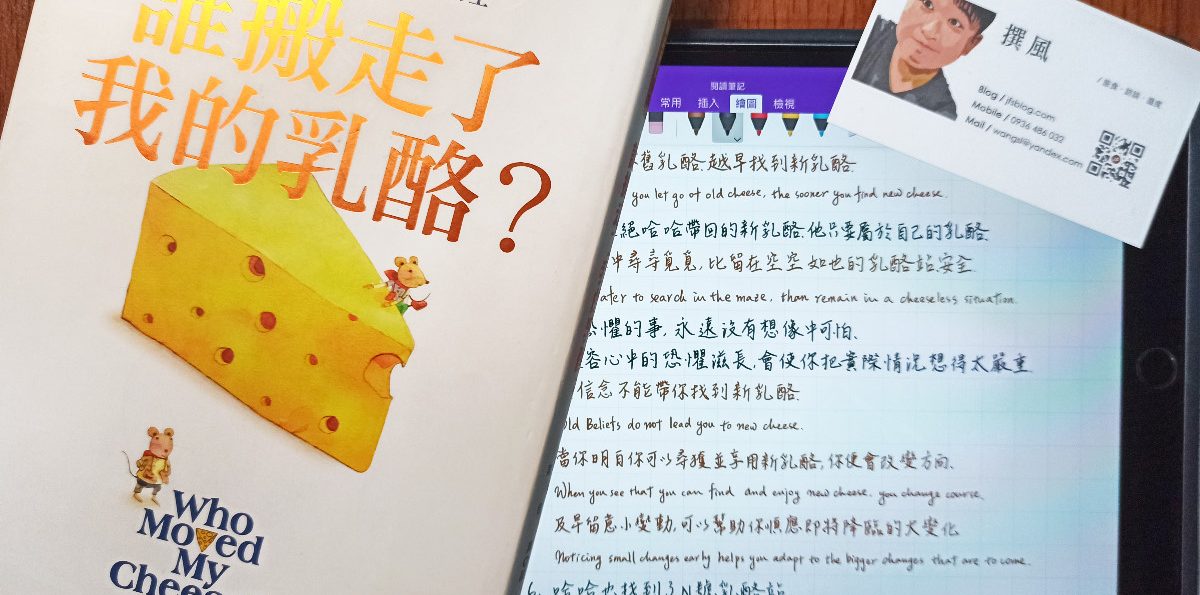 誰搬走了
我的乳酪？
Who
Moved
My
閱讀筆記
常用 插入 繪圖 檢視
舊乳酪、越早找到新乳酪
you let go of old cheese, the sooner you find new cheese.
絕哈哈帶回的新乳酪、他只要屬於自己的乳酪、
中尋尋覓覓，比留在空空如也的乳酪站安全
to search in the maze, than remain in a cheeseless situation.
懼的事，永遠沒有想像中可怕、
容心中的恐懼滋長，會使你把實際情況想得太嚴重
信念不能帶你找到新乳酪、
Old Beliefs do not lead you to new cheese.
當你明白你可以尋獲並享用新乳酪，你便會改變方向、
When you see that you can find and enjoy new cheese, you change course.
及早留意小變動，可以幫助你順應即將降臨的大變化
Noticing small changes early helps you adapt to the bigger changes that are to come.
6. 哈哈也找到了N號乳酪站
撰風
Blog / jfsblog.com
Mobile / 0936 486 032
Mail / wangsl@yandex.com